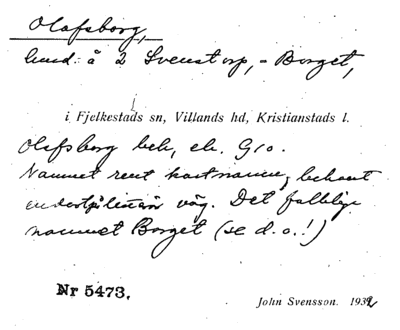 Olafsborg,
hmd. å 2 Svenstorp, - Borget,
i Fjelkestads sn, Villands hd, Kristianstads l.
Olafsborg beb, ek. G10.
Namnet rent kartnamn, bekant
väg. Det folklige
namnet Borget (se d.o.!)
Nr 5473.
John Svensson. 1932